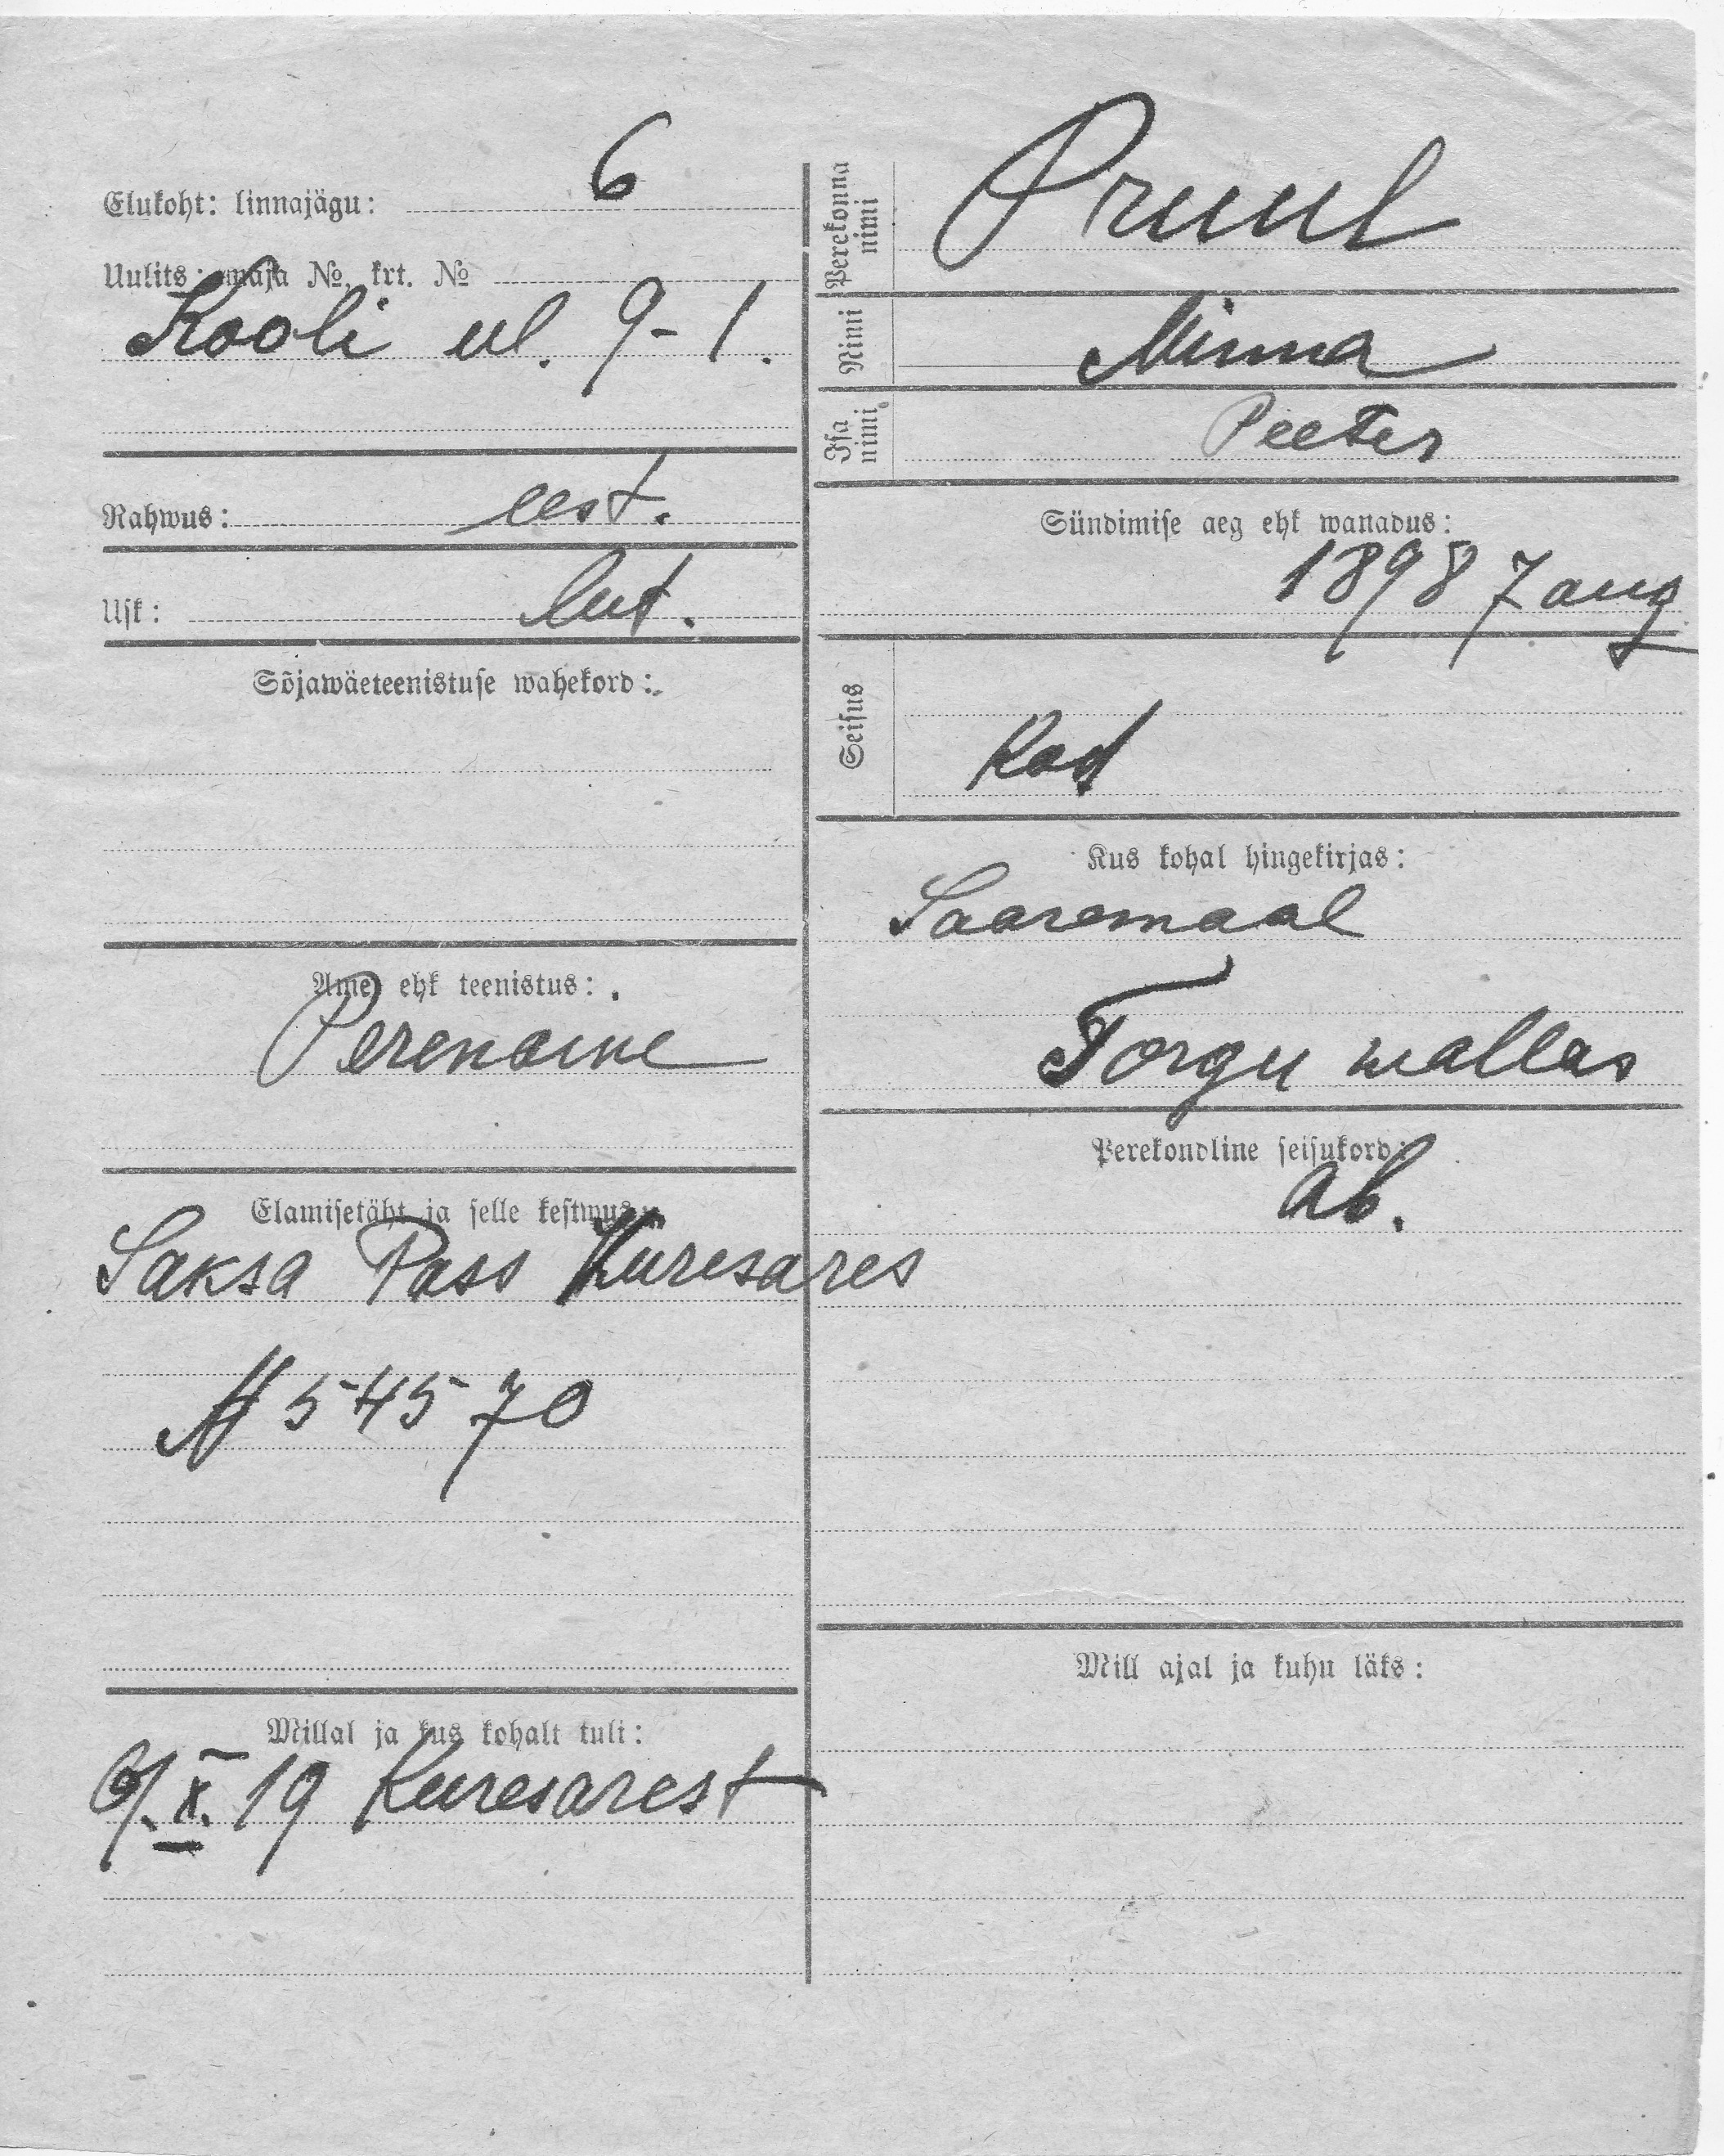 Elukoht: linnajägu: 6
Uulits: maja №, krt. №
Kooli ul. 9-1.
Rahwus: eest.
Usk: lut.
Sõjawäeteenistuse wahekord:
Amet ehk teenistus:
Perenaine
Elamisetäht ja selle kestwus:
Saksa Pass Kuresares
N 54570
Millal ja kus kohalt tuli:
X. 19 Kuresarest
Perekonna nimi
Pruul
Nimi
Minna
Isa nimi
Peeter
Sündimise aeg ehk wanadus:
1898 7 aug
Seisus
Kod
Kus kohal hingekirjas:
Saaremaal
Torgu wallas
Perekondline seisukord:
ab.
Mill ajal ja kuhu läks: